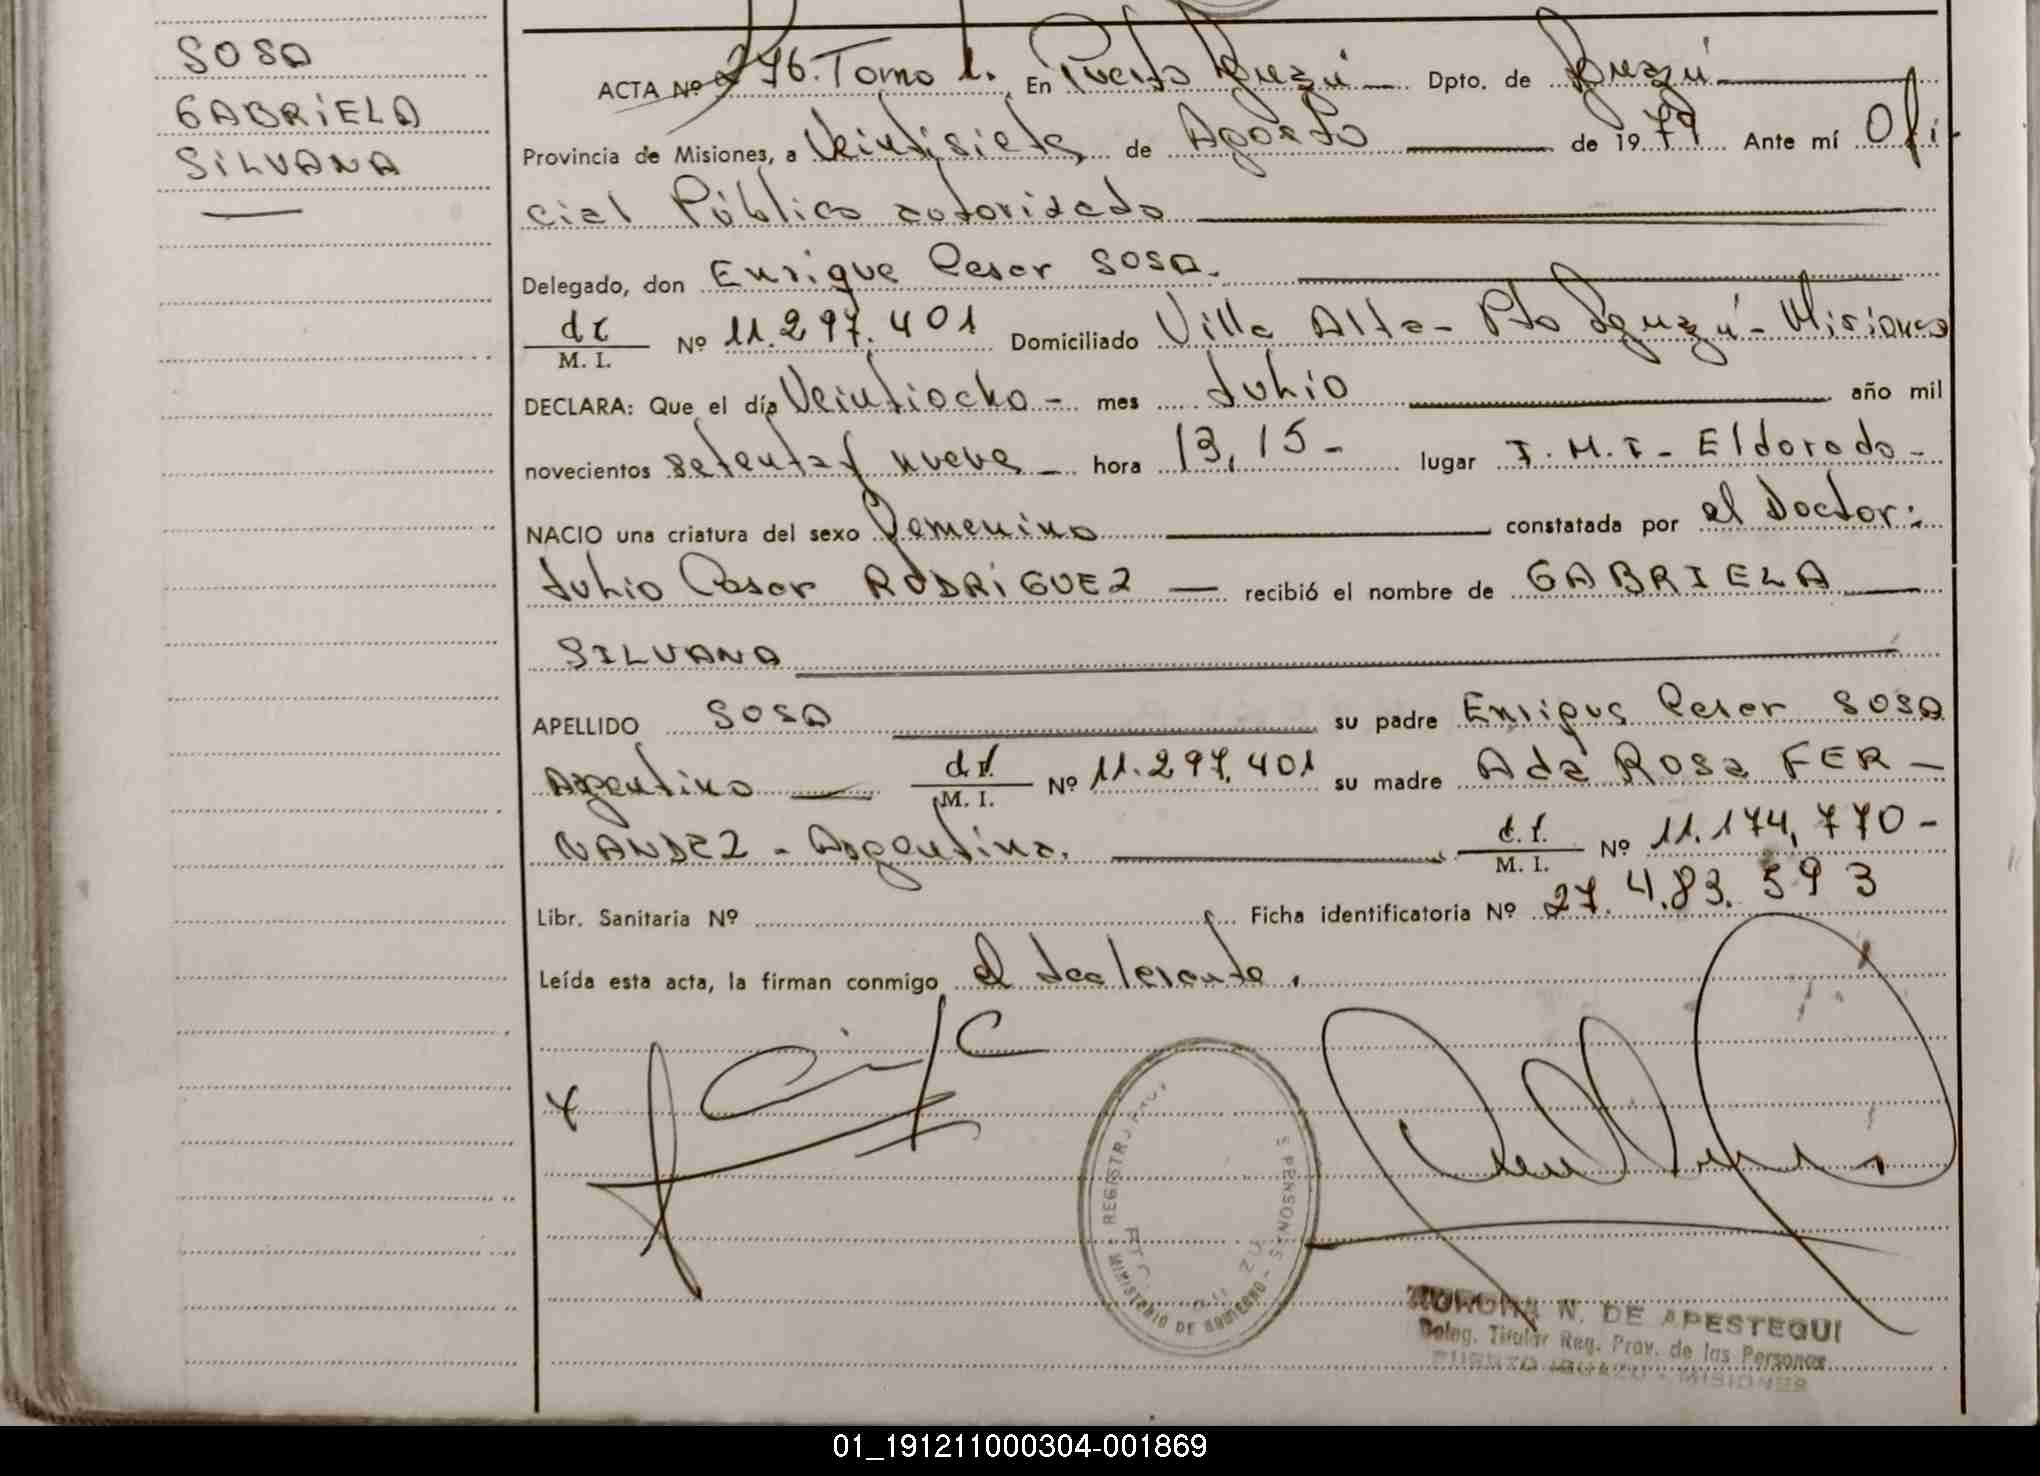 SOSA
GABRIELA
SILVANA
ACTA Nº 276. Tomo 1. En Puerto Iguazú Dpto. de Iguazú
Provincia de Misiones, a Veintisiete de Agosto de 1979 Ante mí Ofi-
cial Público autorizado
Delegado, don Enrique Cesar SOSA.
M. I. Nº 11.297.401 Domiciliado Villa Alta - Pto Iguazú - Misiones
DECLARA: Que el día Veintiocho - mes Julio año mil
novecientos setenta y nueve - hora 13,15 - lugar I.M.I - Eldorado -
NACIO una criatura del sexo Femenino constatada por el Doctor:
Julio Cesar RODRiGUEZ — recibió el nombre de GABRIELA
SILVANA
APELLIDO SOSA su padre Enrique Cesar SOSA
Argentino — d.i. M. I. Nº 11.297.401 su madre Ada Rosa FER -
NANDEZ - Argentina. M. I. Nº 11.174.770 -
Libr. Sanitaria Nº Ficha identificatoria Nº 27.483.593
Leída esta acta, la firman conmigo el declarante.
MINISTERIO DE GOBIERNO -
N. DE APESTEGUI
Deleg. Titular Reg. Prov. de las Personas
PUERTO IGUAZU - MISIONES
01_191211000304-001869